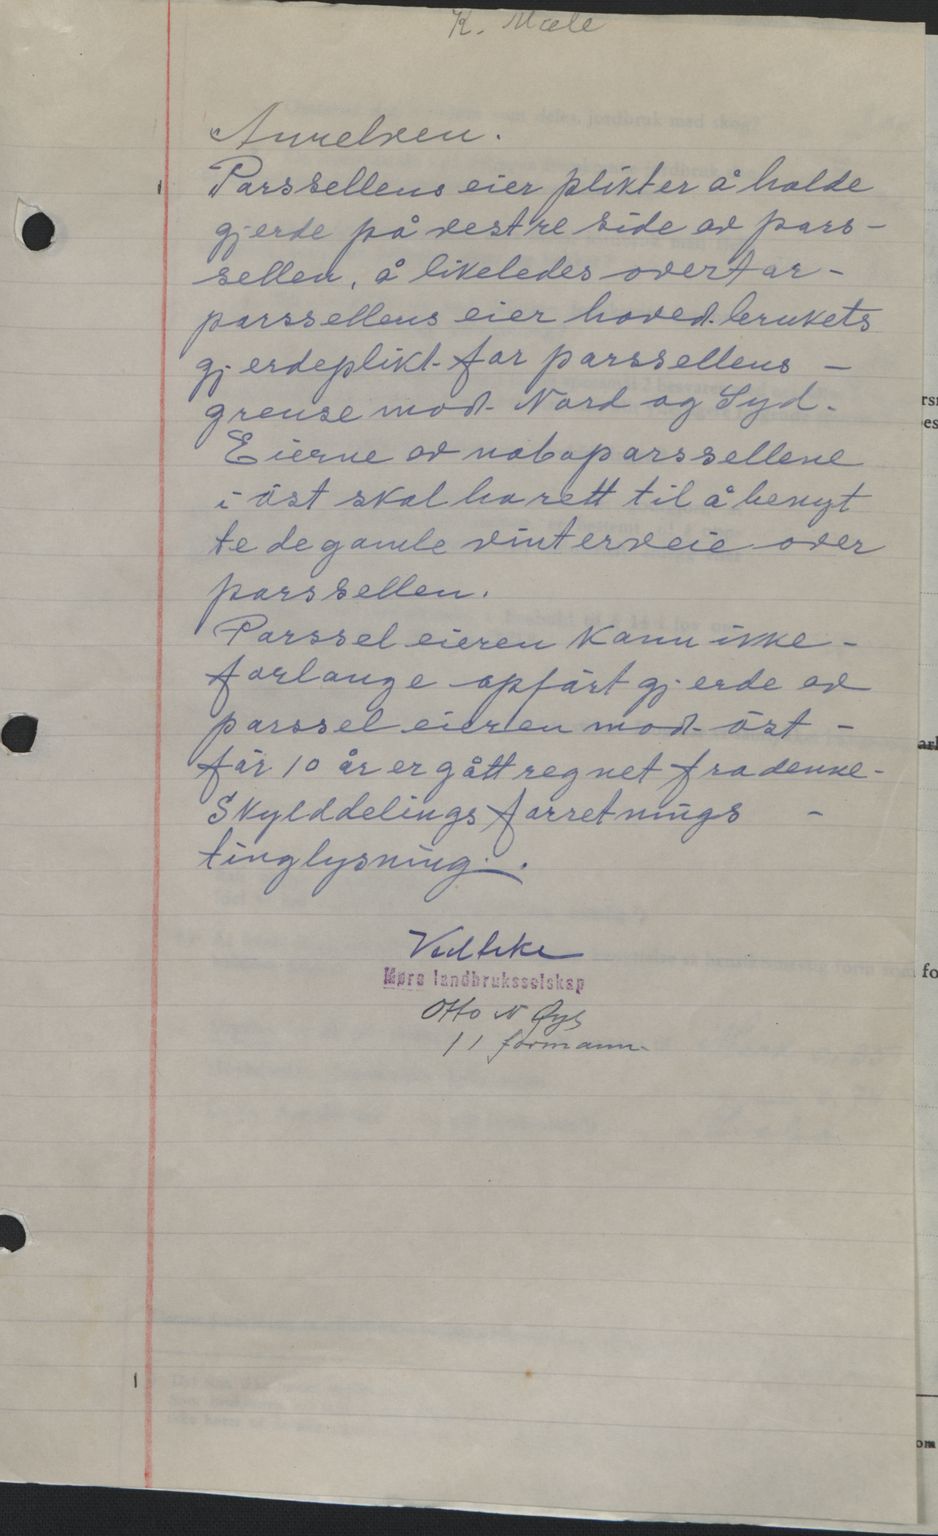 K. Mæle
Anmelden.
Parssellens eier plikter å holde
gjerde på vestre side av pars-
sellen, å likeledes overtar -
parssellens eier hoved.brukets
gjerdeplikt for parssellens -
grense mod Nord og Syd.
Eierne av naboparssellene
i öst skal ha rett til å benyt
te de gamle vinterveie over
parssellen.
Parssel eieren kann ikke -
forlange opfört gjerde av
parssel eieren mod öst -
för 10 år er gått regnet fra denne-
Skylddelings forretnings -
tinglysning.
Vedtske
Møre landbruksselskap
Otto N Øye
/ / formann